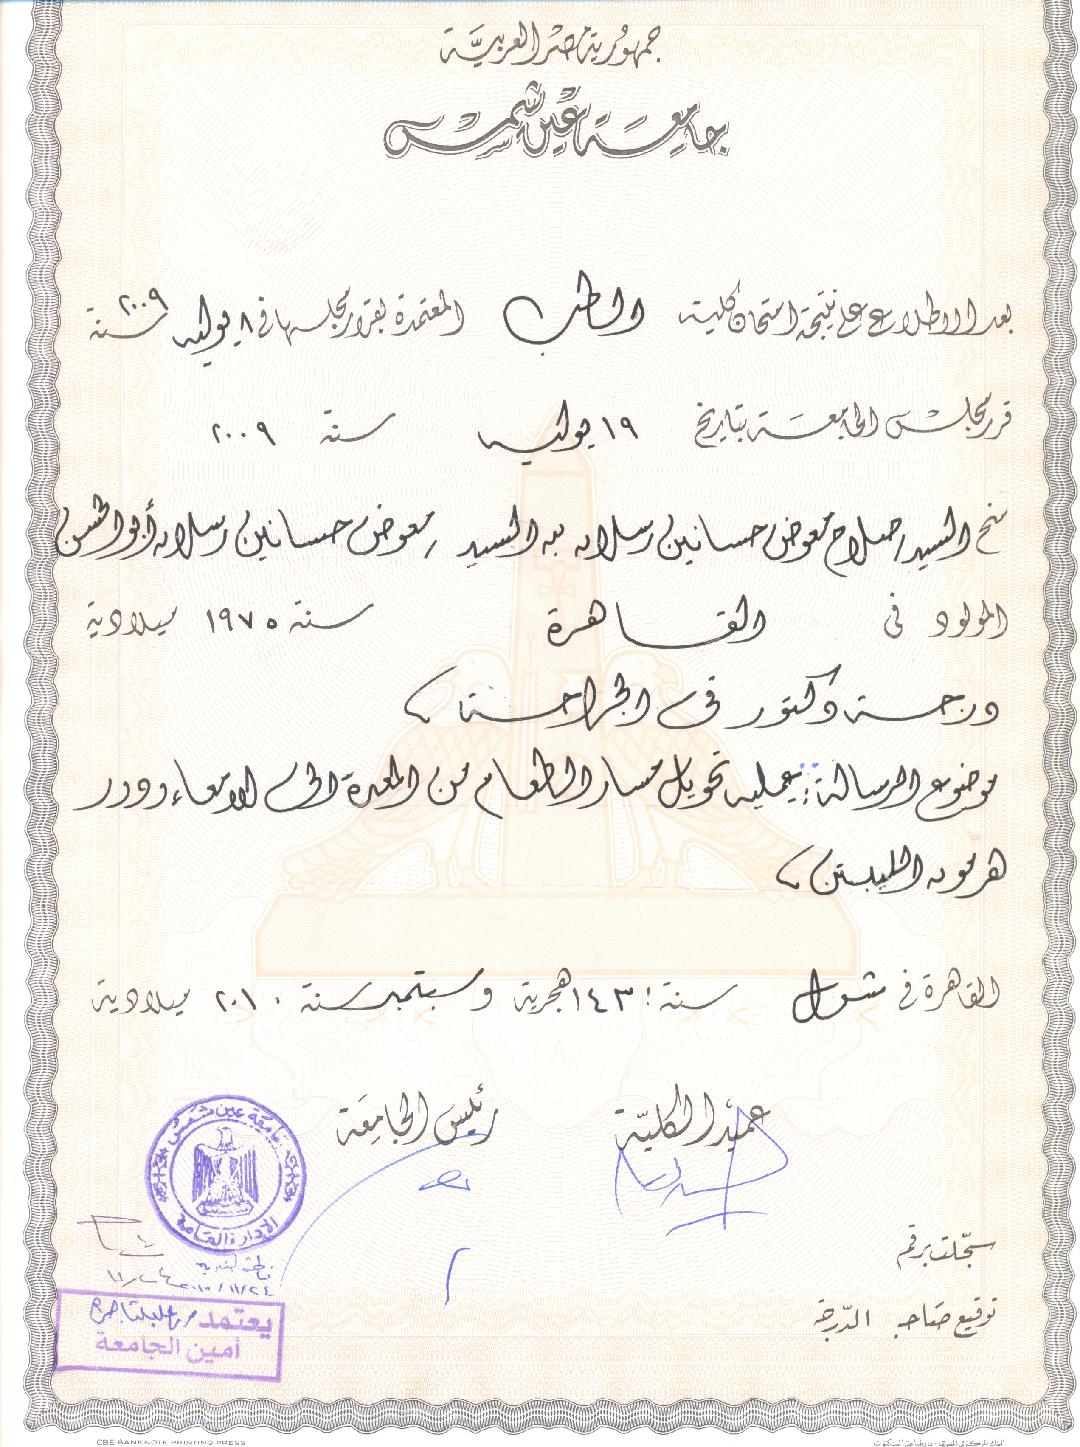 جمهورية مصر العربية
جامعة عين شمس
بعد الاطلاع على نتيجة امتحان كلية الطب المعتمدة بقرار مجلسها في ٨ يوليه سنة ٢٠٠٩
قرر مجلس الجامعة بتاريخ ١٩ يوليه سنة ٢٠٠٩
منح السيد/ صلاح معوض حسانين رسلان بن السيد/ معوض حسانين رسلان أبو الحسن
المولود في القاهرة سنة ١٩٧٥ ميلادية
درجة دكتور في الجراحة
موضوع الرسالة: عملية تحويل مسار الطعام من المعدة الى الامعاء ودور
هرمون اللبتين
القاهرة في شوال سنة ١٤٣١ هجرية وسبتمبر سنة ٢٠١٠ ميلادية
عميد الكلية
رئيس الجامعة
جامعة عين شمس
الإدارة العامة
سجلت برقم
٢٠١٠/١١/٢٤
توقيع صاحب الدرجة
يعتمد
أمين الجامعة
CBE BANKNOTE PRINTING PRESS